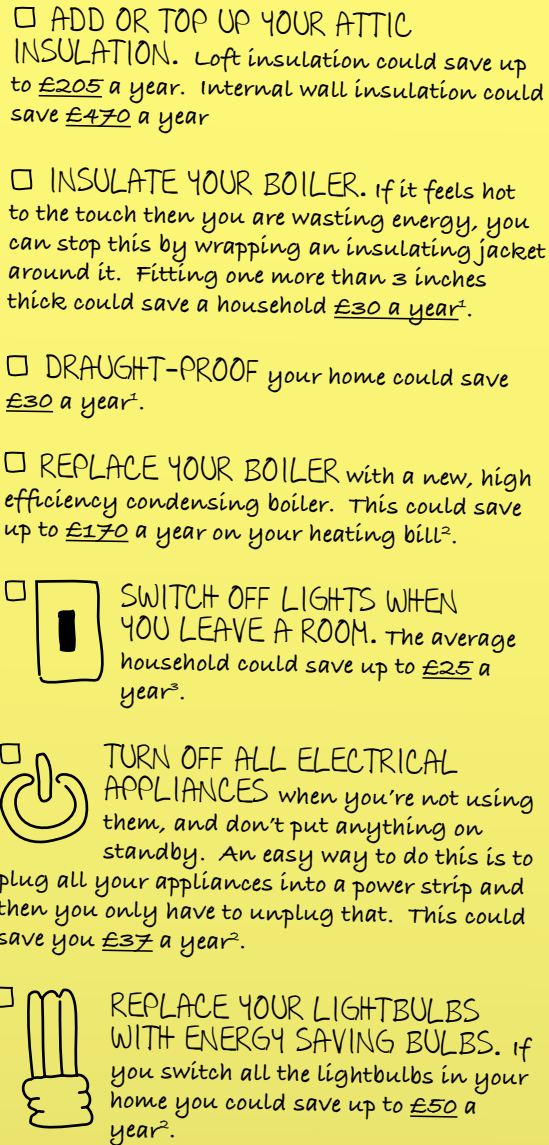 ADD OR TOP UP YOUR ATTIC
INSULATION. Loft insulation could save up
to £205 a year. Internal wall insulation could
save £470 a year
INSULATE YOUR BOILER. If it feels hot
to the touch then you are wasting energy, you
can stop this by wrapping an insulating jacket
around it. Fitting one more than 3 inches
thick could save a household £30 a year¹.
DRAUGHT-PROOF your home could save
£30 a year¹.
REPLACE YOUR BOILER with a new, high
efficiency condensing boiler. This could save
up to £170 a year on your heating bill².
SWITCH OFF LIGHTS WHEN
YOU LEAVE A ROOM. The average
household could save up to £25 a
year³.
TURN OFF ALL ELECTRICAL
APPLIANCES when you're not using
them, and don't put anything on
standby. An easy way to do this is to
plug all your appliances into a power strip and
then you only have to unplug that. This could
save you £37 a year².
REPLACE YOUR LIGHTBULBS
WITH ENERGY SAVING BULBS. If
you switch all the lightbulbs in your
home you could save up to £50 a
year².